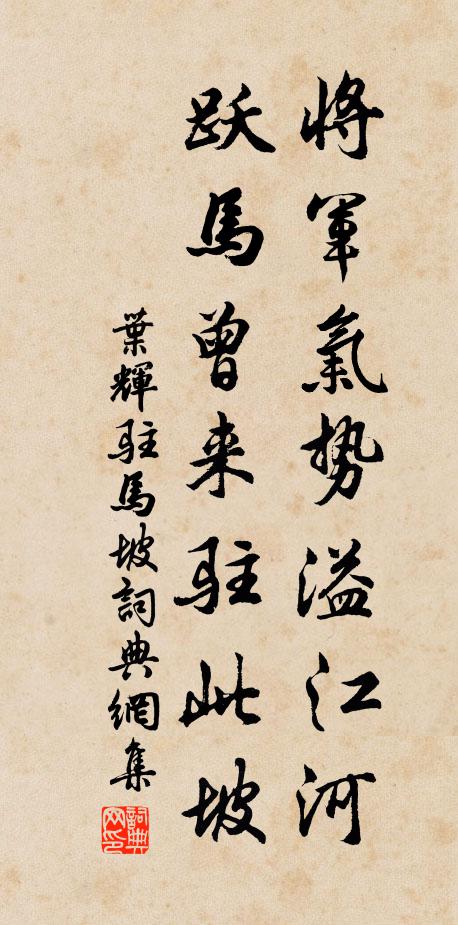 將軍氣勢溢江河
跃馬曾来驻此坡
葉輝驻馬坡詞典網集
詞典网印